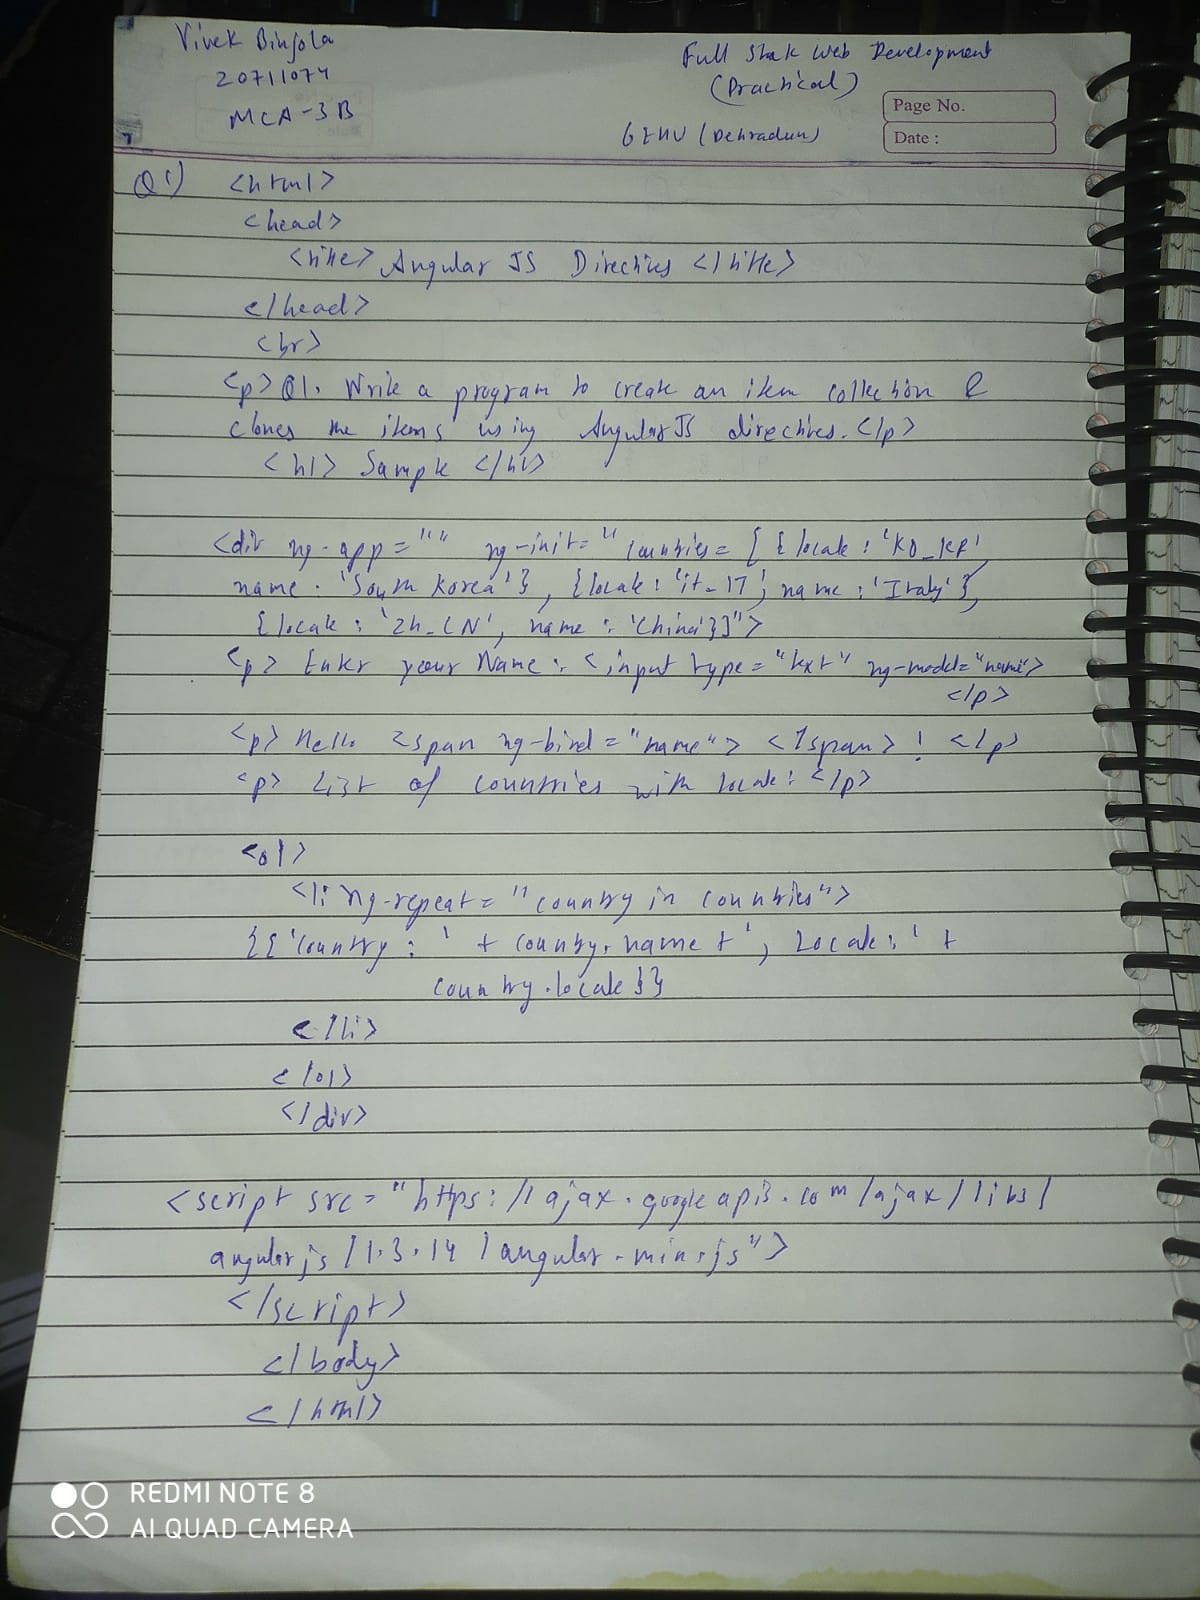 Vivek Binjola
20711074
MCA-3B
Full Stak Web Development
(Practical)
Page No.
Date :
GEHU (Dehradun)
Q1) <html>
<head>
<title> Angular JS Directives </title>
</head>
<br>
<p> Q1. Write a program to create an item collection &
clones the items using AngularJS directives. </p>
<h1> Sample </h1>
<div ng-app="" ng-init="countries=[{locale:'KO_KR'
name:'South Korea'}, {locale:'it-IT', name:'Italy'},
{locale:'zh_CN', name:'China'}]">
<p> Enter your Name: <input type="text" ng-model="name">
</p>
<p> Hello <span ng-bind="name"> </span> ! </p>
<p> List of countries with locale: </p>
<ol>
<li ng-repeat="country in countries">
{{'Country:' + country.name + ', Locale:' +
country.locale}}
</li>
</ol>
</div>
<script src="https://ajax.googleapis.com/ajax/libs/
angularjs/1.3.14/angular.min.js">
</script>
</body>
</html>
REDMI NOTE 8
AI QUAD CAMERA